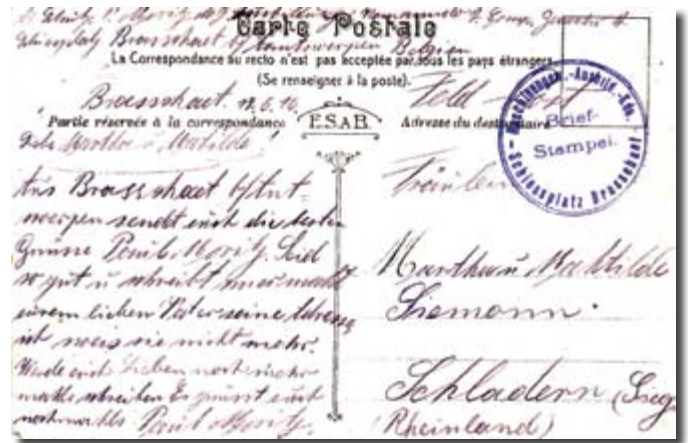 Carte Postale
Schiessplatz Brasschaet b/Antwerpen Belgien
La Correspondance au recto n'est pas acceptée par tous les pays étrangers
(Se renseigner à la poste).
Brasschaet.
Feld-Post
Partie réservée à la correspondance
E.S.A.B.
Adresse du destinataire
Brief-
Stempel.
Schiessplatz Brasschaet
Martha u. Mathilde
Aus Brasschaet b/Ant-
werpen sendet euch die besten
Grüsse Paul Moritz. Seid
so gut u schreibt mir
eurem lieben Vater seine Adresse
ich weis sie nicht mehr.
Werde euch Lieben noch mehr
mals schreiben Es grüsst euch
nochmals Paul Moritz.
Fräulein
Martha u. Mathilde
Siemonn.
Schladern (Sieg
(Rheinland)